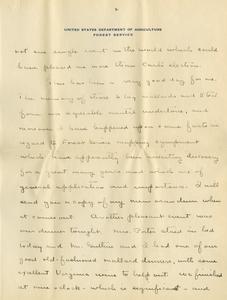 2
UNITED STATES DEPARTMENT OF AGRICULTURE
FOREST SERVICE
not one single event in the world which could
have pleased me more than Carl's election.
This has been a very good day for me.
The memory of ducks to lay mallards and I tell
form an agreeable mental undertone, and
moreover I have happened upon some facts in
regard to Forest Service mapping equipment
which have apparently been awaiting discovery
for a great many years and which are of
general application and importance. I will
send you a copy of my memorandum when
it comes out. Another pleasant event was
our dinner tonight. Mrs. Potter dined in bed
today and Mr. Smith and I had one of our
good old-fashioned mallard dinners, with some
excellent Virginia ham to help out. We finished
at nine o'clock - which is significant - and